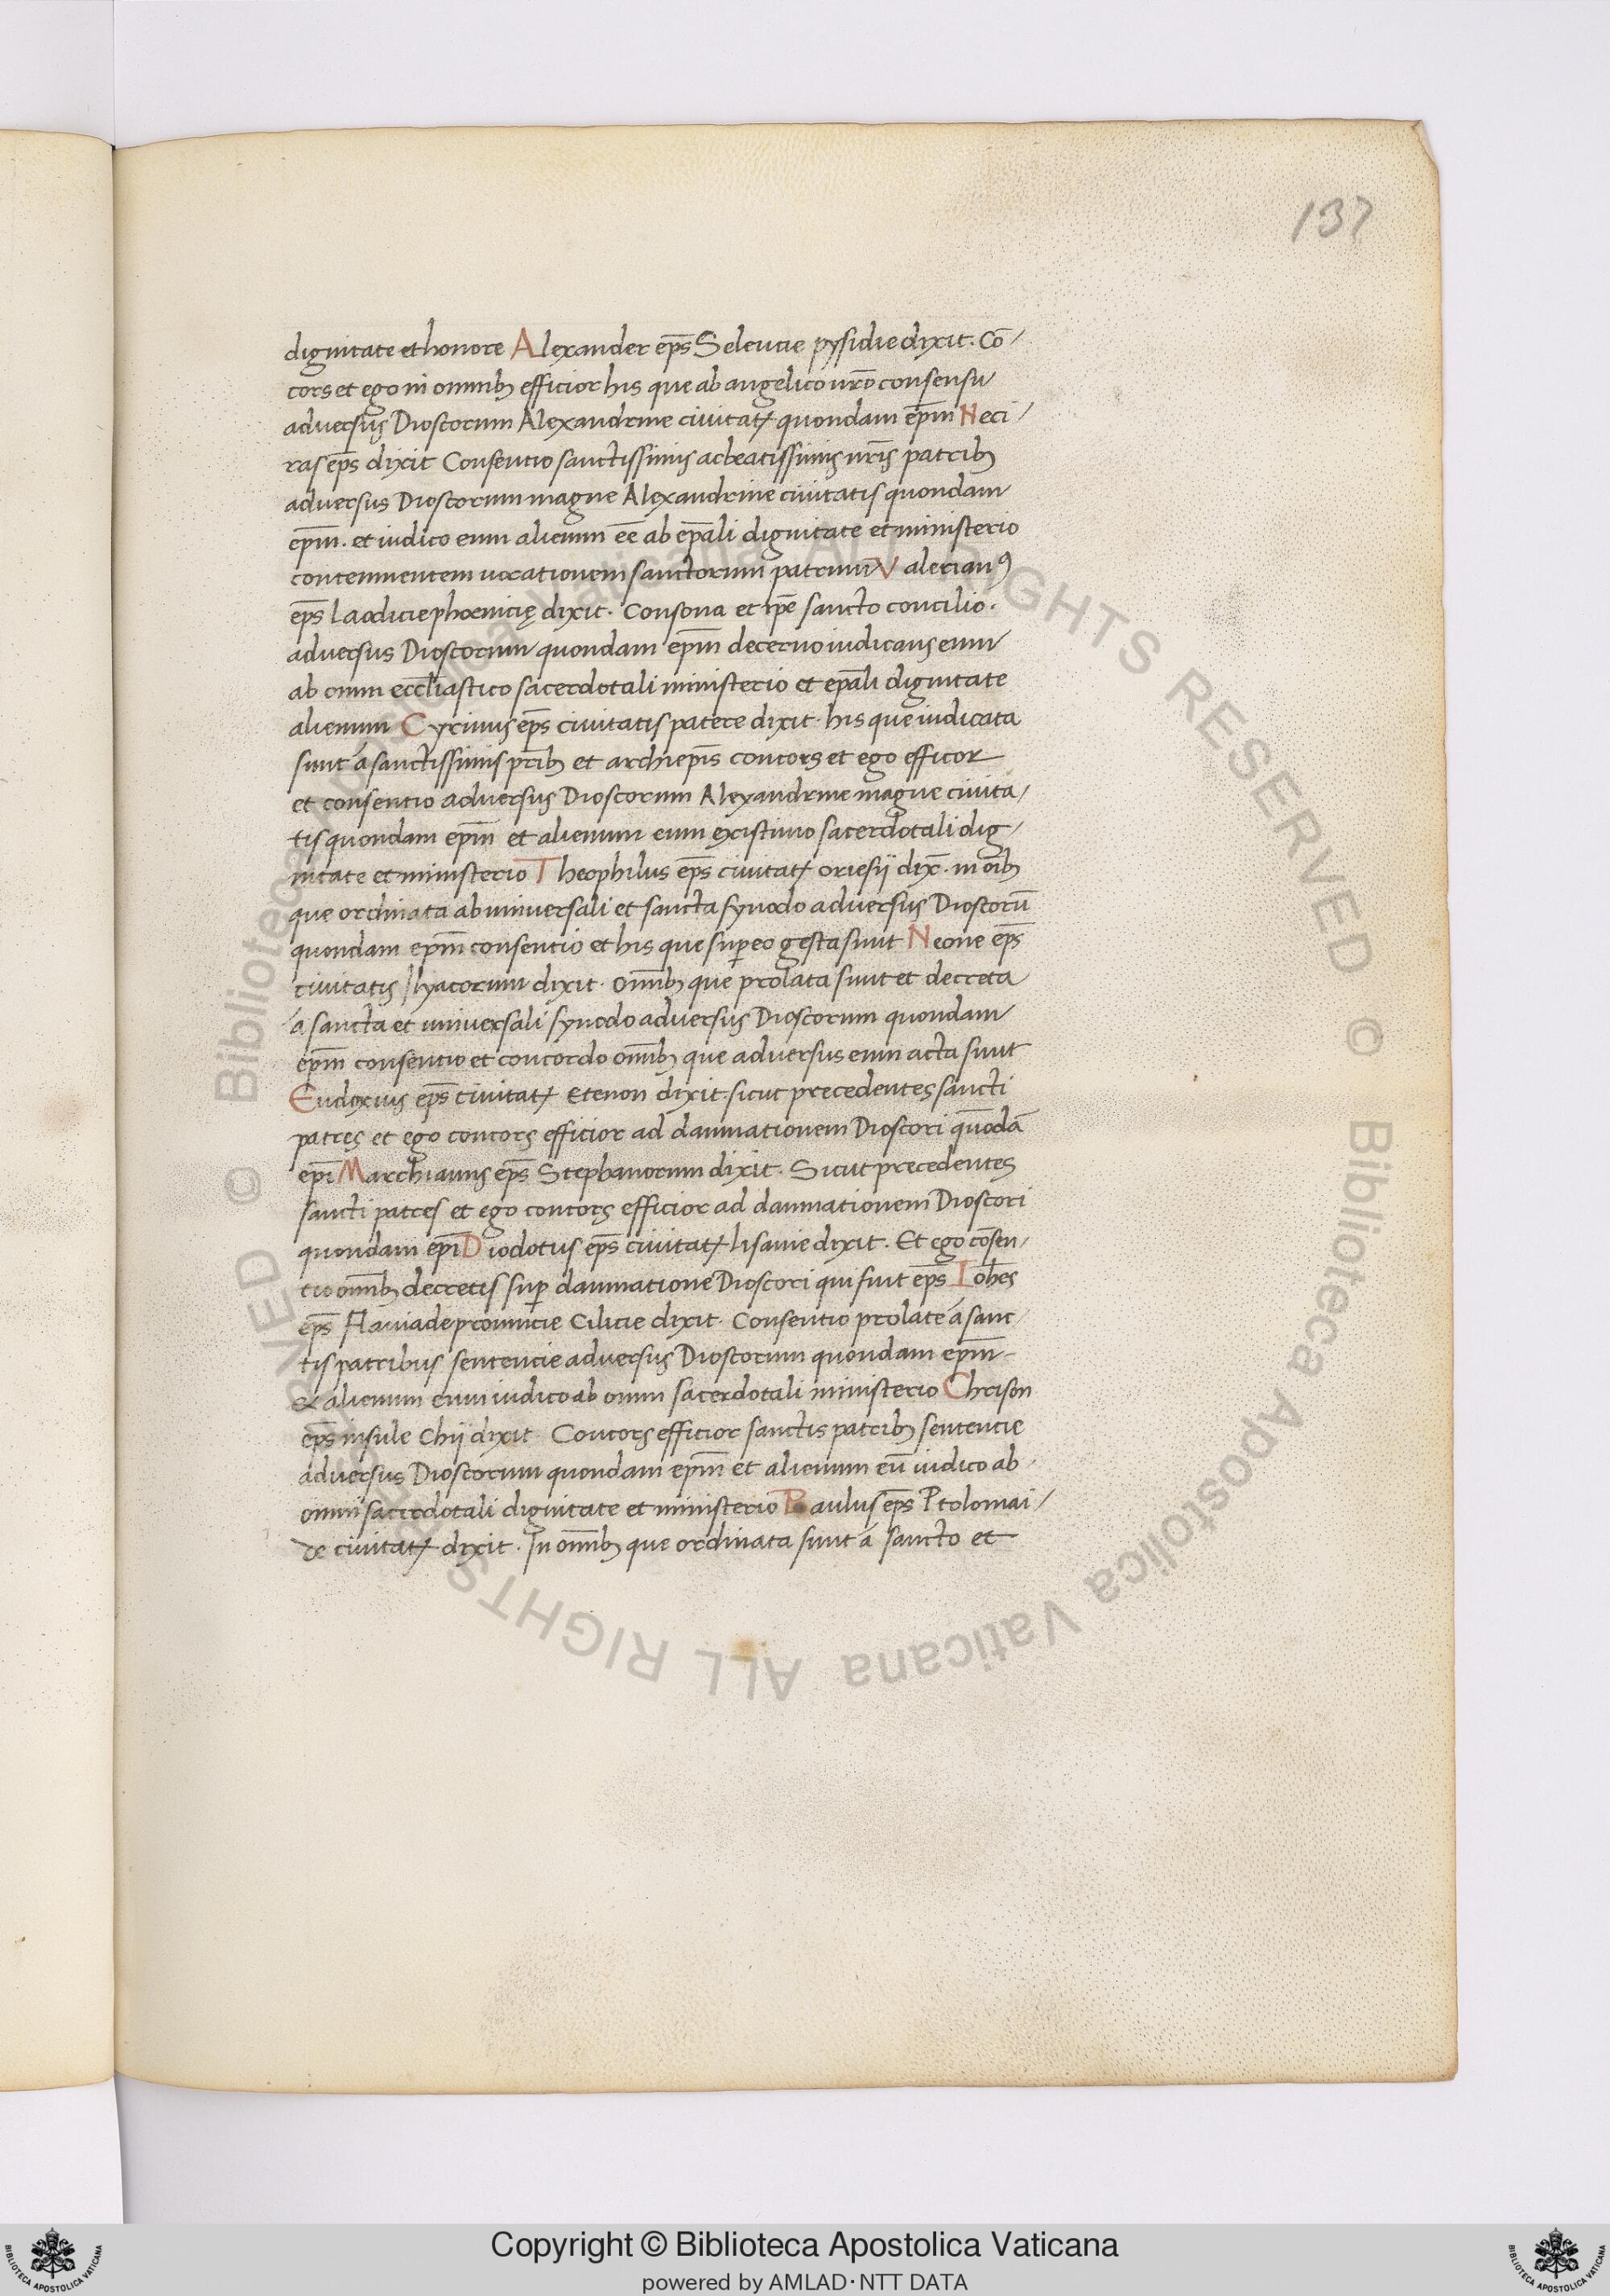 137
dignitate et honore Alexander ep̄s Seleucie pysidie dixit. Cō/
cors et ego in omnibꝫ efficior his que ab angelico nr̄o consensu
adversus Dioscorum Alexandrine civitatꝭ quondam ep̄m Neci/
ras ep̄s dixit Consentio sanctissimis ac beatissimis nr̄is patribꝫ
adversus Dioscorum magne Alexandrine civitatis quondam
ep̄m. et iudico eum alienum eē ab ep̄ali dignitate et ministerio
contemnentem vocationem sanctorum patrum Valerianꝰ
ep̄s Laodicie phoenicię dixit. Consona et ip̄e sancto concilio.
adversus Dioscorum quondam ep̄m decerno iudicans eum
ab omni eccl̄iastico sacerdotali ministerio et ep̄ali dignitate
alienum Cyrinus ep̄s civitatis patere dixit. his que iudicata
sunt á sanctissimis pr̄ibꝫ et archiep̄is concors et ego efficor
et consentio adversus Dioscorum Alexandrine magne civita/
tis quondam ep̄m et alienum eum existimo sacerdotali dig/
nitate et ministerio Theophilus ep̄s civitatꝭ oriesii dix̄. in oībꝫ
que ordinata ab universali et sancta synodo adversus Dioscorū
quondam ep̄m consentio et his que sup̱ eo gesta sunt Neone ep̄s
civitatis Ihyacorum dixit. omībꝫ que prolata sunt et decreta
á sancta et universali synodo adversus Dioscorum quondam
ep̄m consentio et concordo omībꝫ que adversus eum acta sunt
Eudoxius ep̄s civitatꝭ Etenon dixit. sicut precedentes sancti
patres et ego concors efficior ad damnationem Dioscori quōdā
ep̄i Marchianus ep̄s Stephanorum dixit. Sicut precedentes
sancti patres et ego concors efficior ad damnationem Dioscori
quondam ep̄i Diodotus ep̄s civitatꝭ lisanie dixit. Et ego cōsen/
tio omībꝫ decretis sup̱ damnatione Dioscori qui fuit ep̄s Ioh̄es
ep̄s Flaviade provincie Cilicie dixit. Consentio prolate á sanc/
tis patribus sentencie adversus Dioscorum quondam ep̄m
& alienum eum iudico ab omni sacerdotali ministerio Chrison
ep̄s insule Chij dixit Concors efficior sanctis patribꝫ sentencie
adversus Dioscorum quondam ep̄m et alienum eū iudico ab
omni sacerdotali dignitate et ministerio Paulus ep̄s Ptolomai/
de civitatꝭ dixit. In omībꝫ que ordinata sunt á sancto et
© Biblioteca Apostolica Vaticana ALL RIGHTS RESERVED
Copyright © Biblioteca Apostolica Vaticana
powered by AMLAD·NTT DATA
BIBLIOTECA APOSTOLICA VATICANA
BIBLIOTECA APOSTOLICA VATICANA